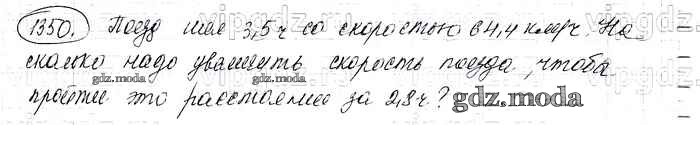 1350. Поезд шел 3,5 ч со скоростью 64,4 км/ч. На
сколько надо увеличить скорость поезда, чтобы
gdz.moda
пройти это расстояние за 2,8 ч? gdz.moda
gdz.moda